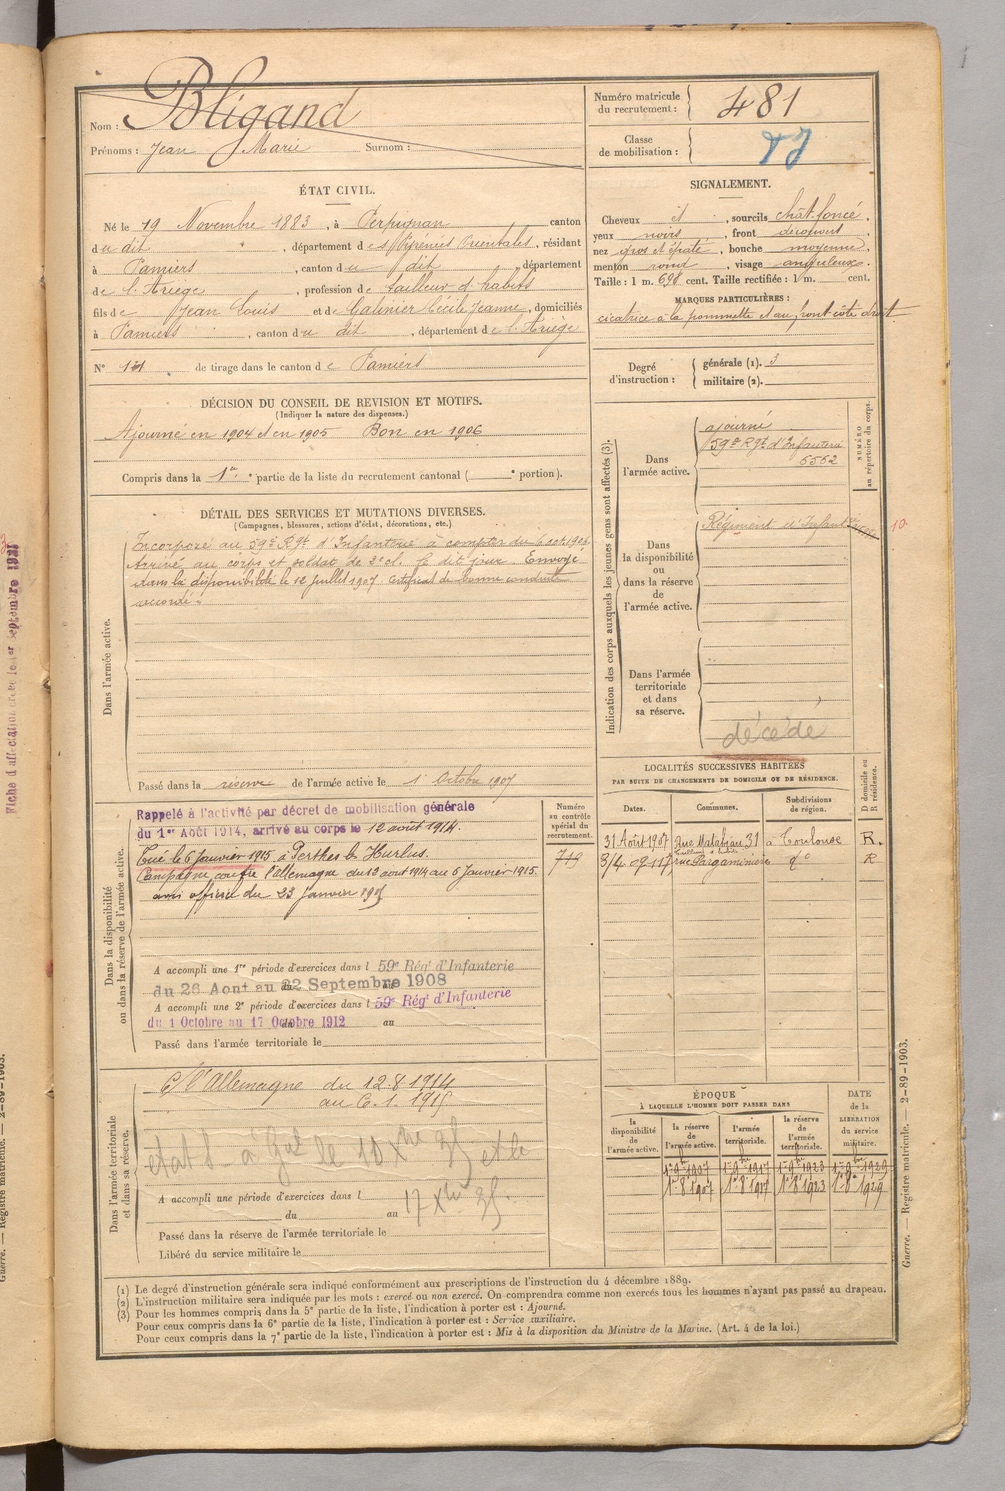 Nom : Bligand
Prénoms : Jean Marie Surnom :
Numéro matricule du recrutement : 481
Classe de mobilisation :
ÉTAT CIVIL.
Né le 19 Novembre 1883, à Perpignan canton
du dit, département des Pyrénées Orientales, résidant
à Pamiers, canton du dit, département
de l'Ariège, profession de tailleur d'habits
fils de Jean Louis et de Galinier Cécile Jeanne, domiciliés
à Pamiers, canton du dit, département de l'Ariège
N° de tirage dans le canton de Pamiers
SIGNALEMENT.
Cheveux et, sourcils chât. foncé,
yeux noirs, front découvert
nez gros et épaté, bouche moyenne,
menton rond, visage anguleux.
Taille : 1 m. 698 cent. Taille rectifiée : 1 m. cent.
MARQUES PARTICULIÈRES :
cicatrice à la pommette et au front côté droit
Degré d'instruction : générale (1). 3
militaire (2).
DÉCISION DU CONSEIL DE REVISION ET MOTIFS.
(Indiquer la nature des dispenses.)
Ajourné en 1904 et en 1905 Bon en 1906
Compris dans la 1re partie de la liste du recrutement cantonal ( e portion).
DÉTAIL DES SERVICES ET MUTATIONS DIVERSES.
(Campagnes, blessures, actions d'éclat, décorations, etc.)
Dans l'armée active.
Incorporé au 59e Rgt d'Infanterie à compter du 6 oct. 1906
Arrivé au corps et soldat de 2e cl. le dit jour. Envoyé
dans la disponibilité le 12 juillet 1907. Certificat de bonne conduite
accordé.
Passé dans la réserve de l'armée active le 1 Octobre 1907
Indication des corps auxquels les jeunes gens sont affectés (3).
NUMÉRO au répertoire du corps.
Dans l'armée active.
ajourné
59e Rgt d'Infanterie
6562
Dans la disponibilité ou dans la réserve de l'armée active.
Régiment d'Infant
10
Dans l'armée territoriale et dans sa réserve.
décédé
Dans la disponibilité ou dans la réserve de l'armée active.
Rappelé à l'activité par décret de mobilisation générale
du 1er Août 1914, arrivé au corps le 12 août 1914.
Tué le 6 janvier 1915 à Perthes les Hurlus.
Campagne contre l'Allemagne du 12 août 1914 au 6 janvier 1915.
avis officiel du 23 janvier 1915
Numéro au contrôle spécial du recrutement.
A accompli une 1re période d'exercices dans l 59e Régt d'Infanterie
du 26 Aout au 22 Septembre 1908
A accompli une 2e période d'exercices dans l 59e Régt d'Infanterie
du 1 Octobre au 17 Octobre 1912 au
Passé dans l'armée territoriale le
LOCALITÉS SUCCESSIVES HABITÉES
PAR SUITE DE CHANGEMENTS DE DOMICILE OU DE RÉSIDENCE.
Dates. Communes. Subdivisions de région. D domicile ou R résidence.
31 Août 1907 Rue Matabiau 31 à Toulouse R.
3/4 09 rue Pargaminière do R
Dans l'armée territoriale et dans sa réserve.
C/ l'Allemagne du 12.8.1914
au 6.1.1915
A accompli une période d'exercices dans l
du au
Passé dans la réserve de l'armée territoriale le
Libéré du service militaire le
ÉPOQUE
À LAQUELLE L'HOMME DOIT PASSER DANS
DATE de la LIBÉRATION du service militaire.
la disponibilité de l'armée active. la réserve de l'armée active. l'armée territoriale. la réserve de l'armée territoriale.
1er 9bre 1907 1er 9bre 1917 1er 9bre 1923 1er 9bre 1929
1er 8bre 1907 1er 8bre 1917 1er 8bre 1923 1er 8bre 1929
(1) Le degré d'instruction générale sera indiqué conformément aux prescriptions de l'instruction du 4 décembre 1889.
(2) L'instruction militaire sera indiquée par les mots : exercé ou non exercé. On comprendra comme non exercés tous les hommes n'ayant pas passé au drapeau.
(3) Pour les hommes compris dans la 5e partie de la liste, l'indication à porter est : Ajourné.
Pour ceux compris dans la 6e partie de la liste, l'indication à porter est : Service auxiliaire.
Pour ceux compris dans la 7e partie de la liste, l'indication à porter est : Mis à la disposition du Ministre de la Marine. (Art. 4 de la loi.)
Guerre. — Registre matricule. — 2-89-1903.